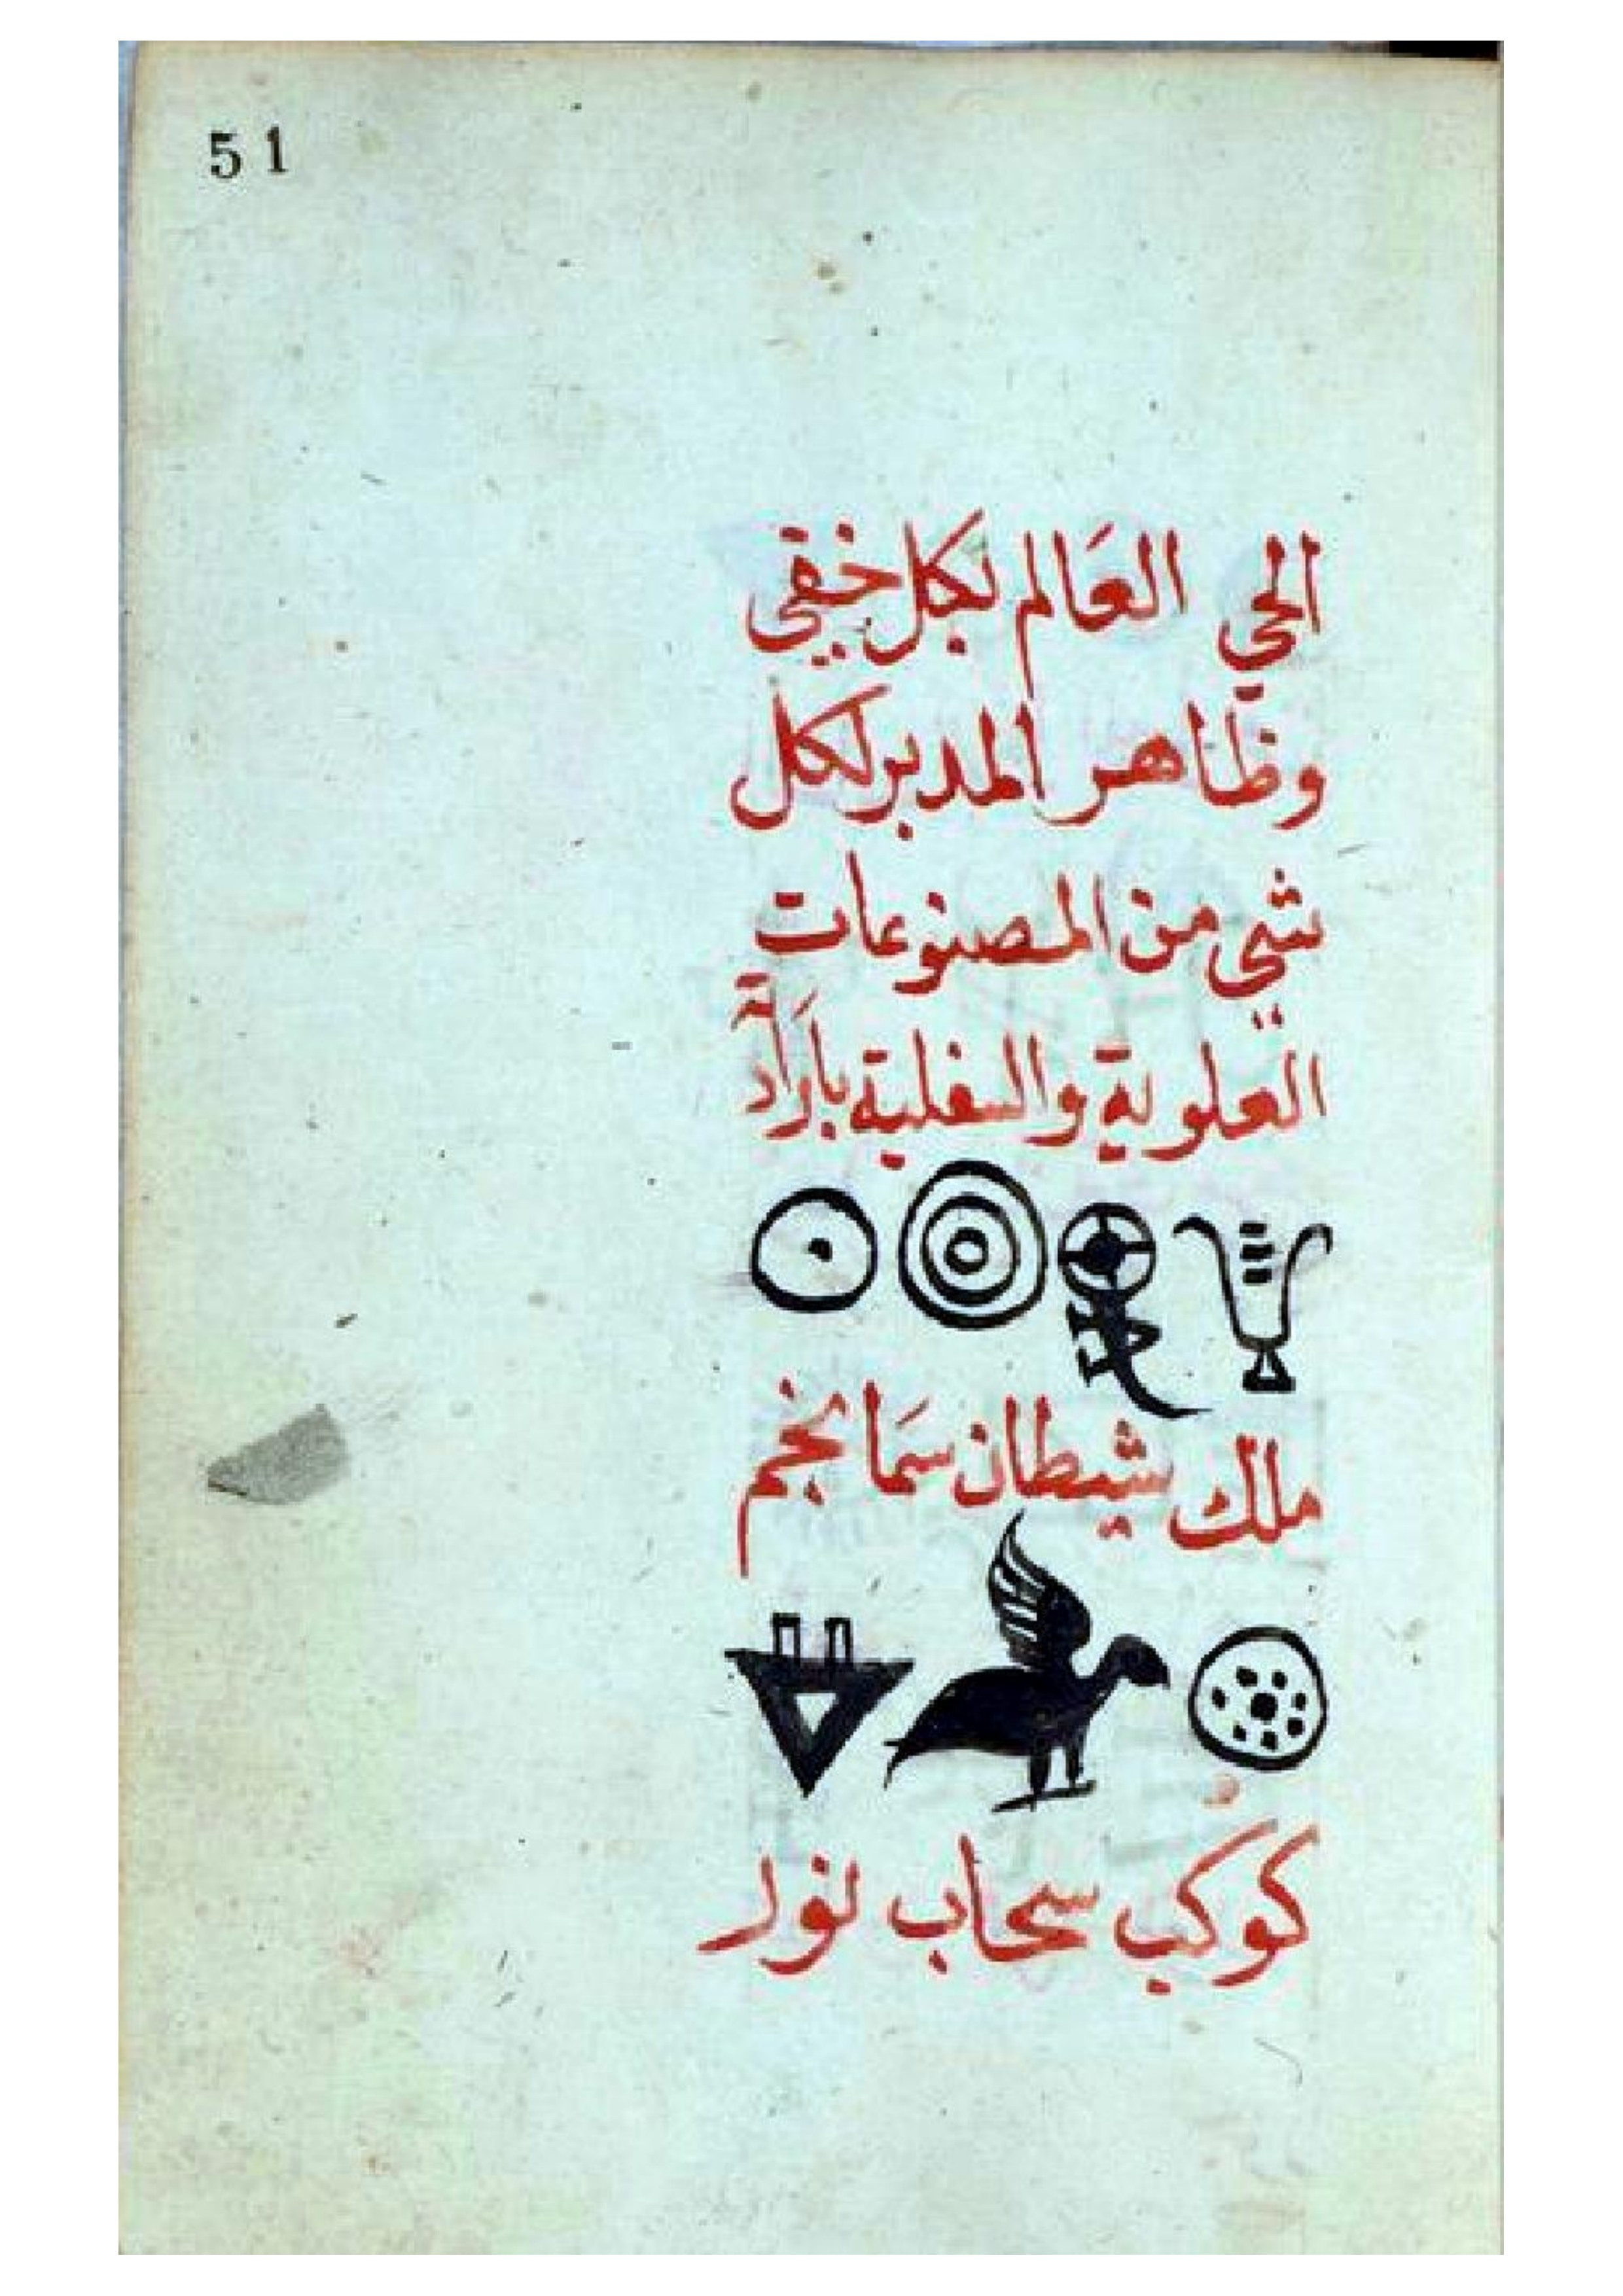 51
الحي العَالم بكل خفي
وظاهر المدبر لكل
شي من المصنوعات
العلوية والسفلية بارَادة
ملك شيطان سمَا نجم
كوكب سحاب نور